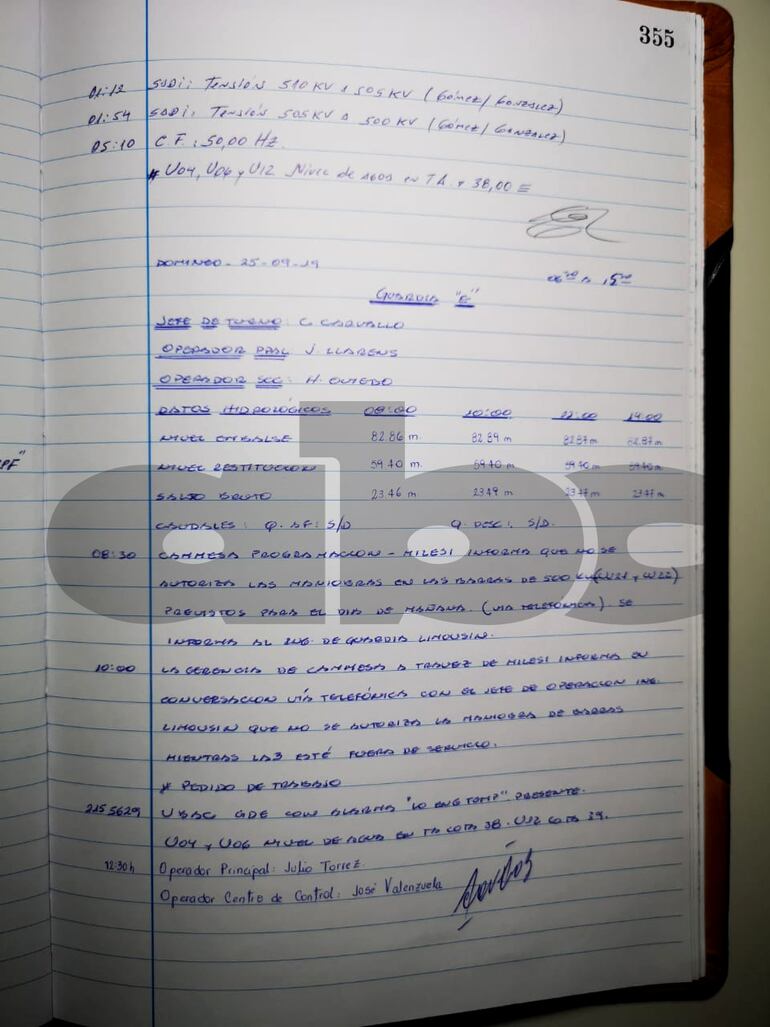 355
01:12 SADI: TENSIÓN 510 KV A 505 KV (GÓMEZ/GONZALEZ)
01:54 SADI: TENSIÓN 505 KV A 500 KV (GÓMEZ/GONZALEZ)
05:10 C.F.: 50,00 HZ.
* U04, U06 y U12 NIVEL DE AGUA EN TA. 38,00
DOMINGO - 25-09-19
06 A 15
GUARDIA "E"
JEFE DE TURNO: C. CARVALLO
OPERADOR PPAL J. LLARENS
OPERADOR SCC: H. OVIEDO
DATOS HIDROLÓGICOS 08:00 10:00 12:00 14:00
NIVEL EMBALSE 82.86 m. 82.89 m 82.87 m 82.87 m
NIVEL RESTITUCION 59.40 m. 59.40 m 59.40 m 59.40 m
SALTO BRUTO 23.46 m 23.49 m 23.47 m 23.47 m
CAUDALES: Q. AF: S/D Q. DESC: S/D.
PF"
abc
08:30 CAMMESA PROGRAMACION - MILESI INFORMA QUE NO SE
AUTORIZA LAS MANIOBRAS EN LAS BARRAS DE 500 KV (CV21 y CV22)
PREVISTOS PARA EL DIA DE MAÑANA. (VIA TELEFÓNICA). SE
INFORMA AL ING. DE GUARDIA LIMOUSIN.
10:00 LA GERENCIA DE CAMMESA A TRAVEZ DE MILESI INFORMA EN
CONVERSACION VÍA TELEFÓNICA CON EL JEFE DE OPERACION ING.
LIMOUSIN QUE NO SE AUTORIZA LA MANIOBRA DE BARRAS
MIENTRAS LA3 ESTÉ FUERA DE SERVICIO.
* PEDIDO DE TRABAJO
2155629 U8AC GDE CON ALARMA "LO ENG TEMP". PRESENTE.
U04 y U06 NIVEL DE AGUA EN TA COTA 38. U12 COTA 39.
12:30h Operador Principal: Julio Torrez.
Operador Centro de Control: José Valenzuela